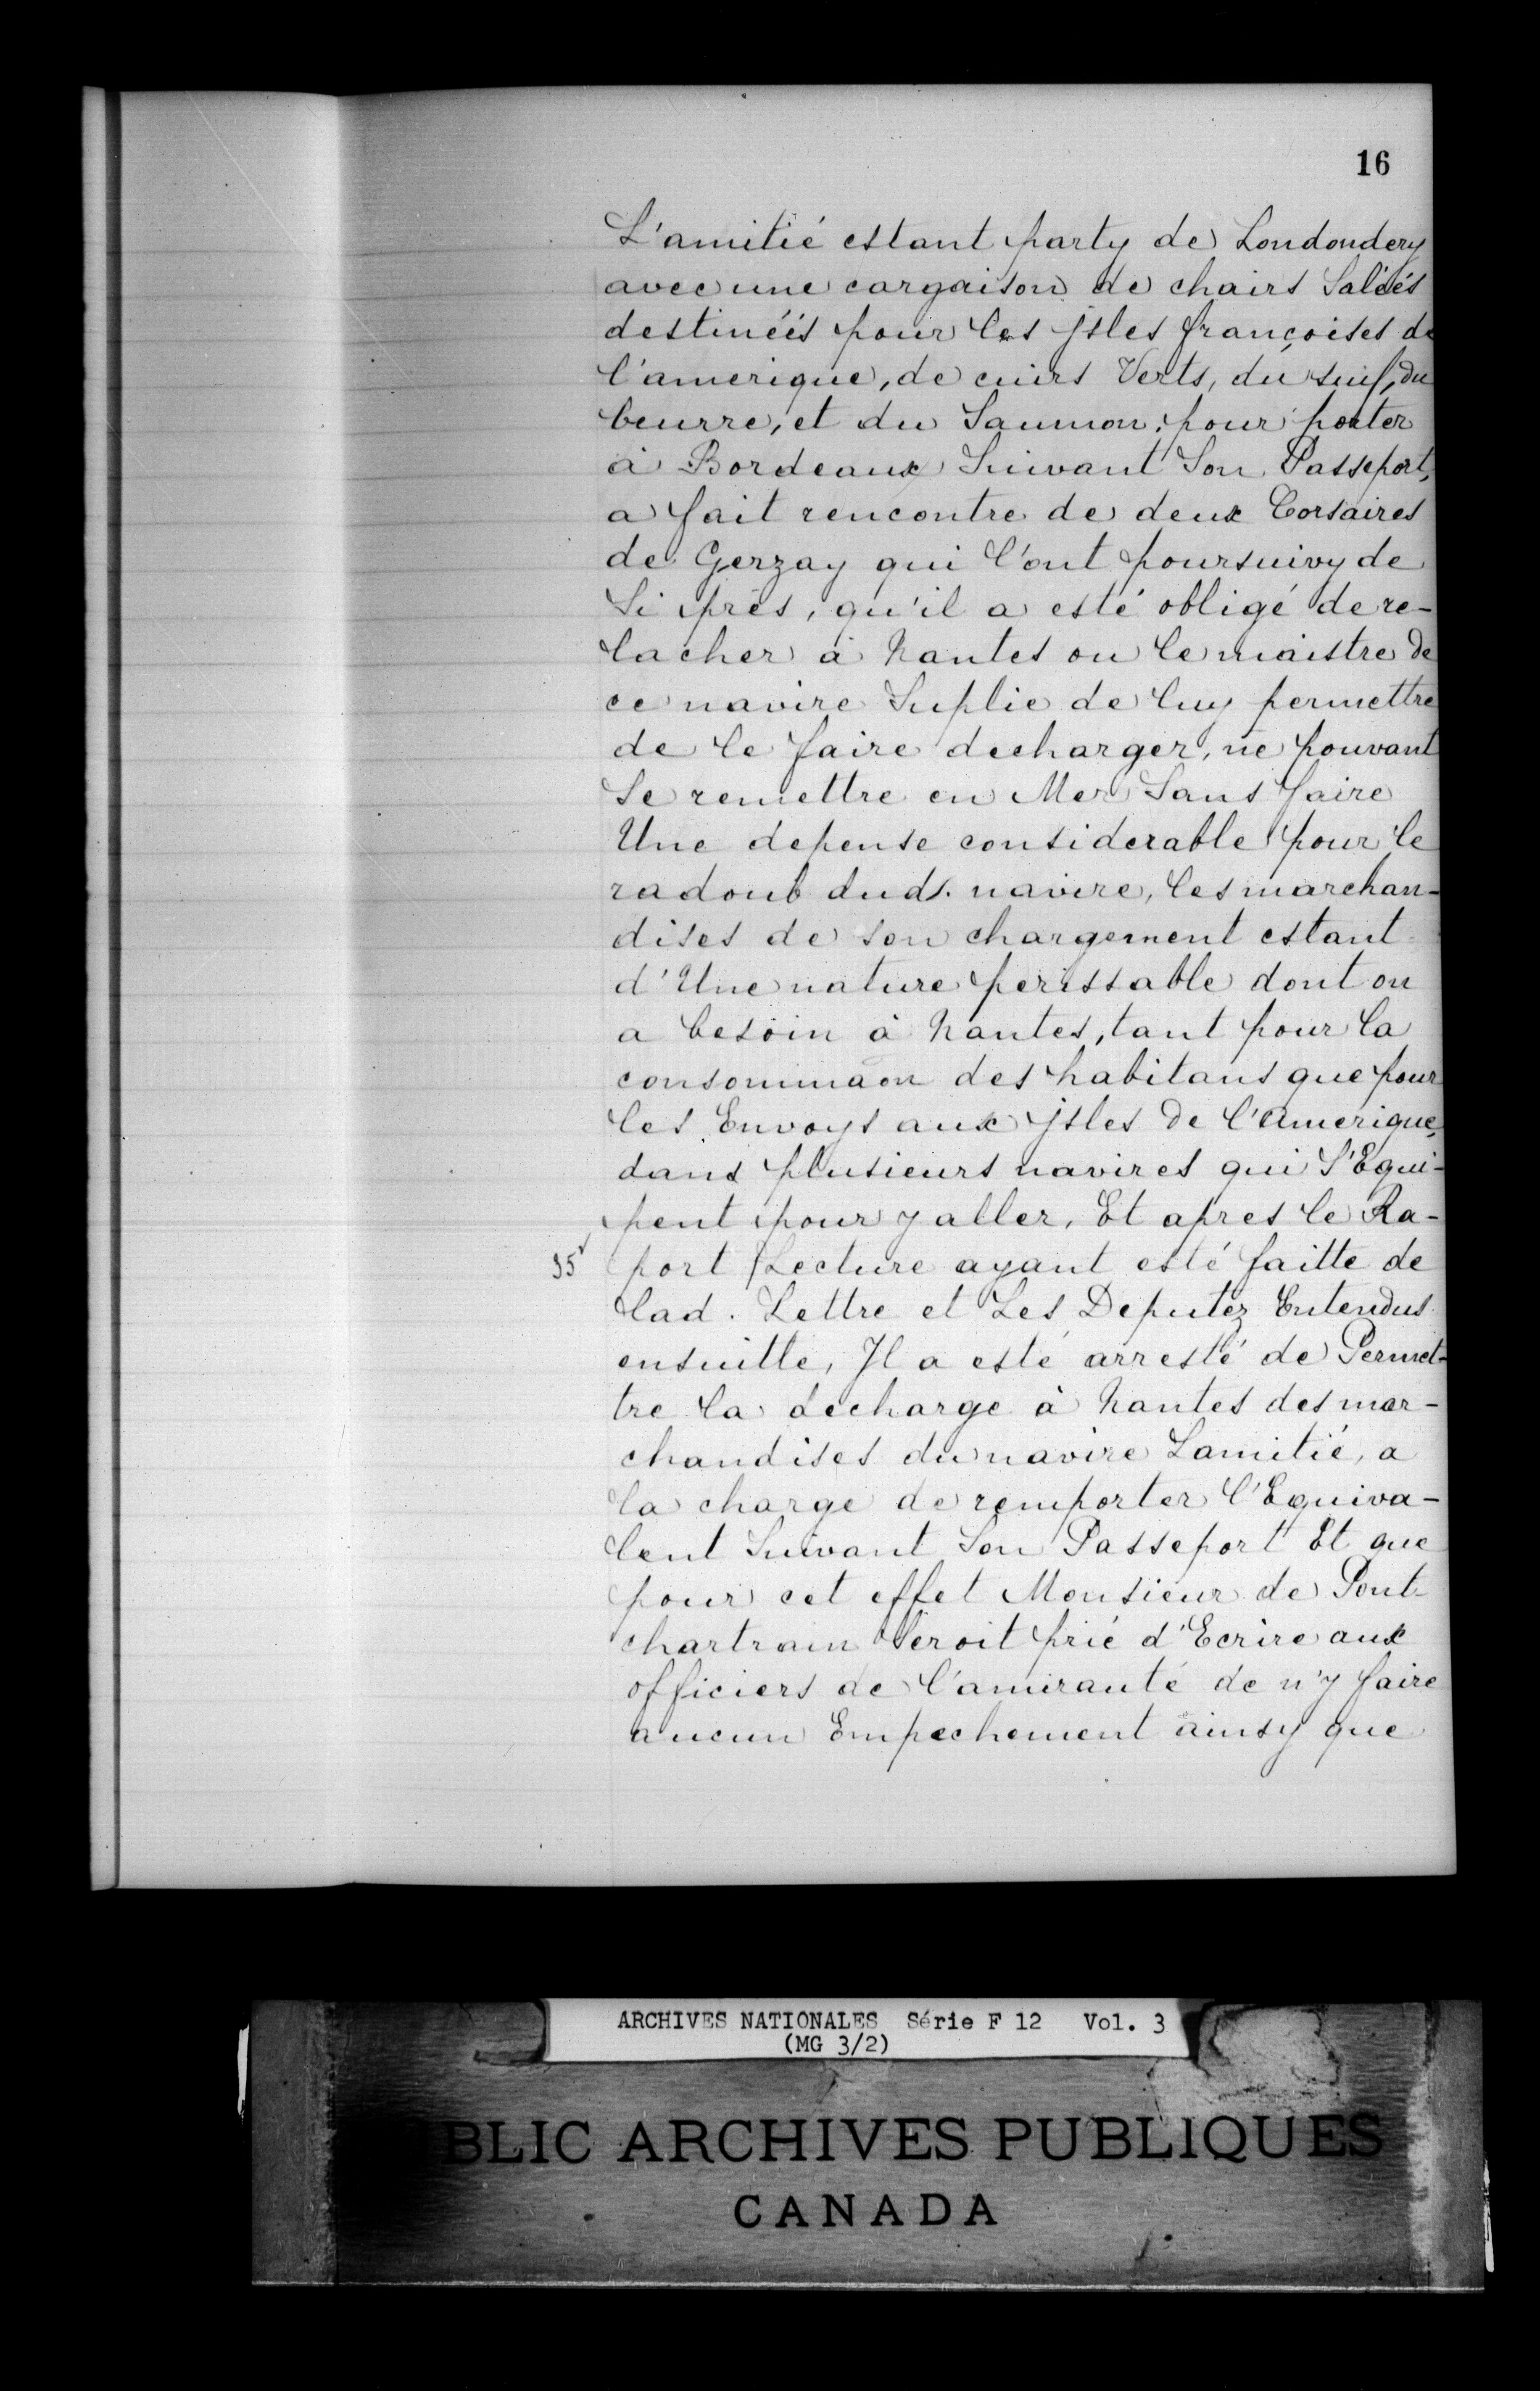 16
L'amitié estant party de Londondery
avec une cargaison de chairs Saléés
destinéés pour les jsles françoises de
l'amerique, de cuirs Verts, du suif, du
beurre, et du Saumon, pour porter
à Bordeaux Suivant Son Passeport,
a fait rencontre de deux Corsaires
de Gerzay qui l'ont poursuivy de
Si près, qu'il a esté obligé de re-
lacher à Nantes ou le maistre de
ce navire Suplie de luy permettre
de le faire decharger, ne pouvant
Se remettre en Mer Sans faire
Une depense considerable pour le
radoub dud. navire, les marchan-
dises de son chargement estant
d'Une nature perissable dont on
a besoin à Nantes, tant pour la
consommaon des habitans que pour
les Envoys aux jsles de l'amerique,
dans plusieurs navires qui S'Equi-
pent pour y aller. Et apres le Ra-
35v port / Lecture ayant esté faitte de
lad. Lettre et Les Deputez Entendus
ensuitte, Il a esté arresté de Permet-
tre la decharge à Nantes des mar-
chandises du navire Lamitié, a
la charge de remporter l'Equiva-
lent Suivant Son Passeport Et que
pour cet effet Monsieur de Pont-
chartrain Seroit prié d'Ecrire aux
officiers de l'amirauté de n'y faire
aucun Empechement ainsy que
ARCHIVES NATIONALES Série F 12 Vol. 3
(MG 3/2)
BLIC ARCHIVES PUBLIQUES
CANADA